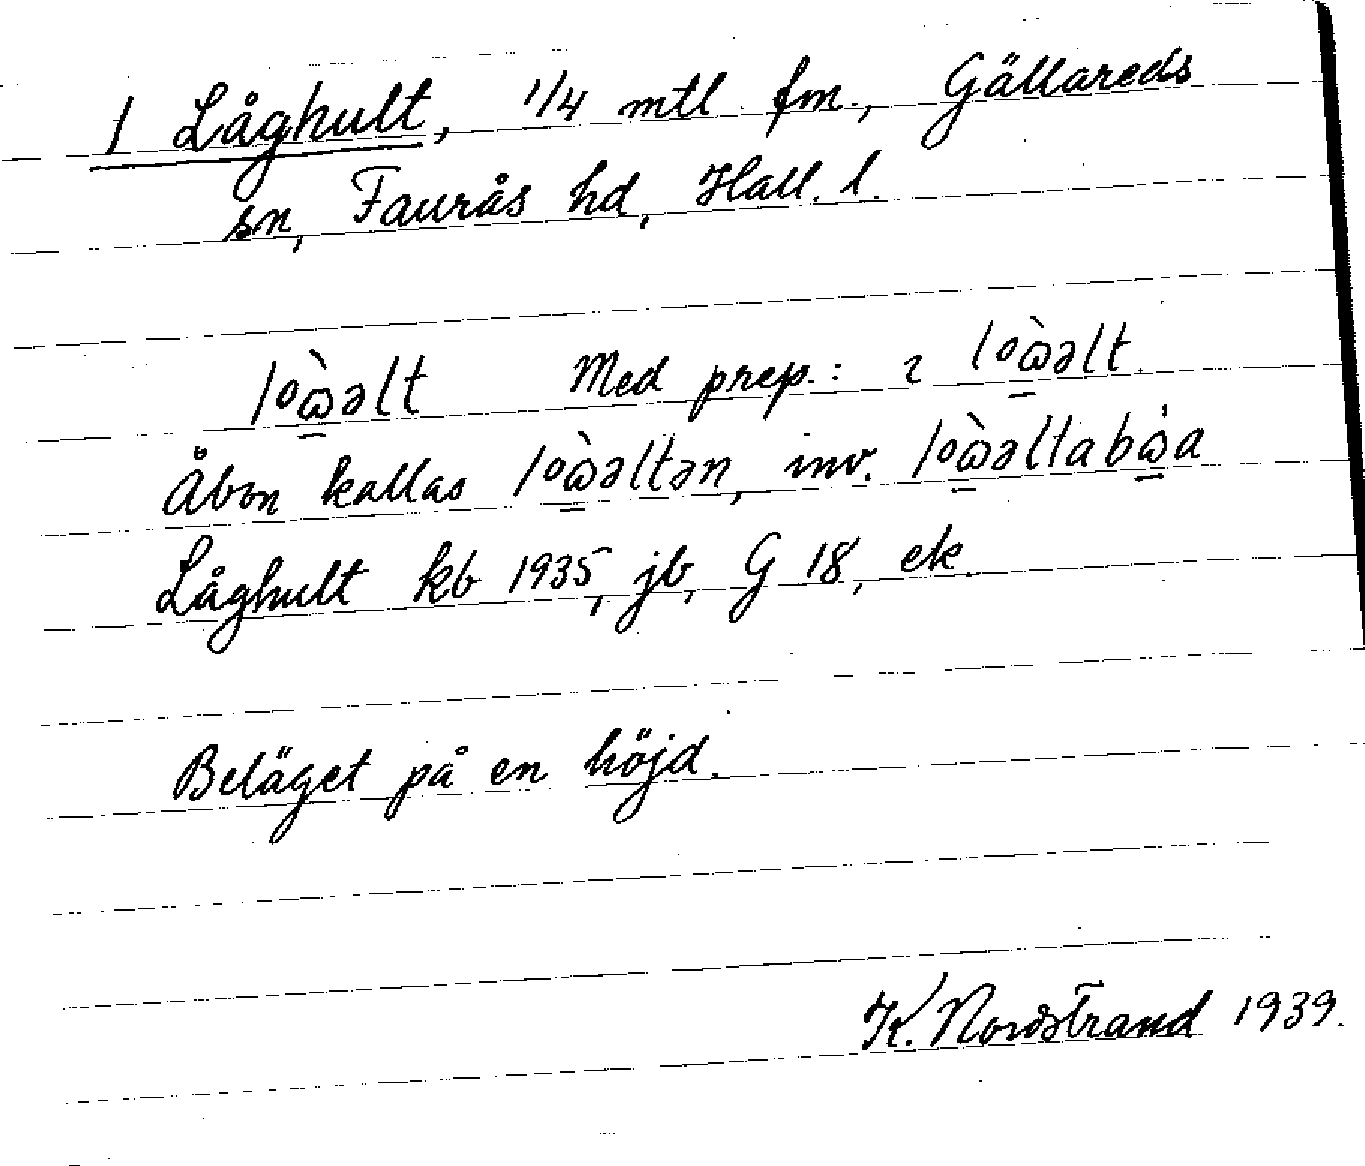 1 Låghult, 1/4 mtl fm., Gällareds
sn, Faurås hd, Hall. l.
loὼ̱əlt Med prep.: ɿ loὼ̱əlt.
Åbon kallas loὼ̱əltən, inv. loὼ̱əltabω̱̇a
Låghult kb 1935, jb, G 18, ek.
Beläget på en höjd.
K. Nordstrand 1939.